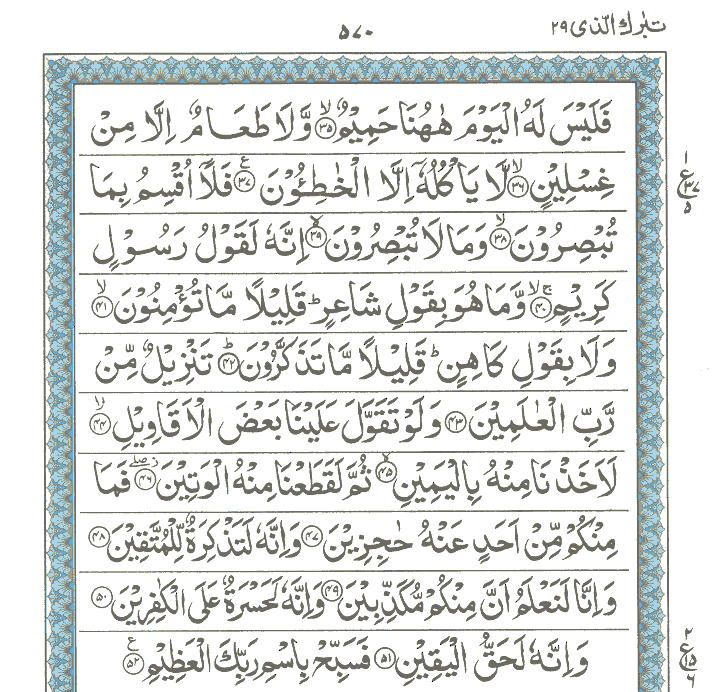 تبٰرك الّذى ٢٩
٥٧٠
فَلَيْسَ لَهُ الْيَوْمَ هٰهُنَا حَمِيْمٌ ۙ﴿٣٥﴾ وَّلَا طَعَامٌ اِلَّا مِنْ
غِسْلِيْنٍ ۙ﴿٣٦﴾ لَّا يَاْكُلُهٗۤ اِلَّا الْخٰطِـُٔوْنَ ﴿٣٧﴾ ع فَلَاۤ اُقْسِمُ بِمَا
تُبْصِرُوْنَ ۙ﴿٣٨﴾ وَمَا لَا تُبْصِرُوْنَ ۙ﴿٣٩﴾ اِنَّهٗ لَقَوْلُ رَسُوْلٍ
كَرِيْمٍ ۚۙ﴿٤٠﴾ وَّمَا هُوَ بِقَوْلِ شَاعِرٍ ؕ قَلِيْلًا مَّا تُؤْمِنُوْنَ ۙ﴿٤١﴾
وَلَا بِقَوْلِ كَاهِنٍ ؕ قَلِيْلًا مَّا تَذَكَّرُوْنَ ؕ﴿٤٢﴾ تَنْزِيْلٌ مِّنْ
رَّبِّ الْعٰلَمِيْنَ ﴿٤٣﴾ وَلَوْ تَقَوَّلَ عَلَيْنَا بَعْضَ الْاَقَاوِيْلِ ۙ﴿٤٤﴾
لَاَخَذْنَا مِنْهُ بِالْيَمِيْنِ ۙ﴿٤٥﴾ ثُمَّ لَقَطَعْنَا مِنْهُ الْوَتِيْنَ ﴿٤٦﴾ فَمَا
مِنْكُمْ مِّنْ اَحَدٍ عَنْهُ حٰجِزِيْنَ ﴿٤٧﴾ وَاِنَّهٗ لَتَذْكِرَةٌ لِّلْمُتَّقِيْنَ ﴿٤٨﴾
وَاِنَّا لَنَعْلَمُ اَنَّ مِنْكُمْ مُّكَذِّبِيْنَ ﴿٤٩﴾ وَاِنَّهٗ لَحَسْرَةٌ عَلَى الْكٰفِرِيْنَ ﴿٥٠﴾
وَاِنَّهٗ لَحَقُّ الْيَقِيْنِ ﴿٥١﴾ فَسَبِّحْ بِاسْمِ رَبِّكَ الْعَظِيْمِ ﴿٥٢﴾ ع
١
ع ٣٧
٥
٢
ع ١٥
٦